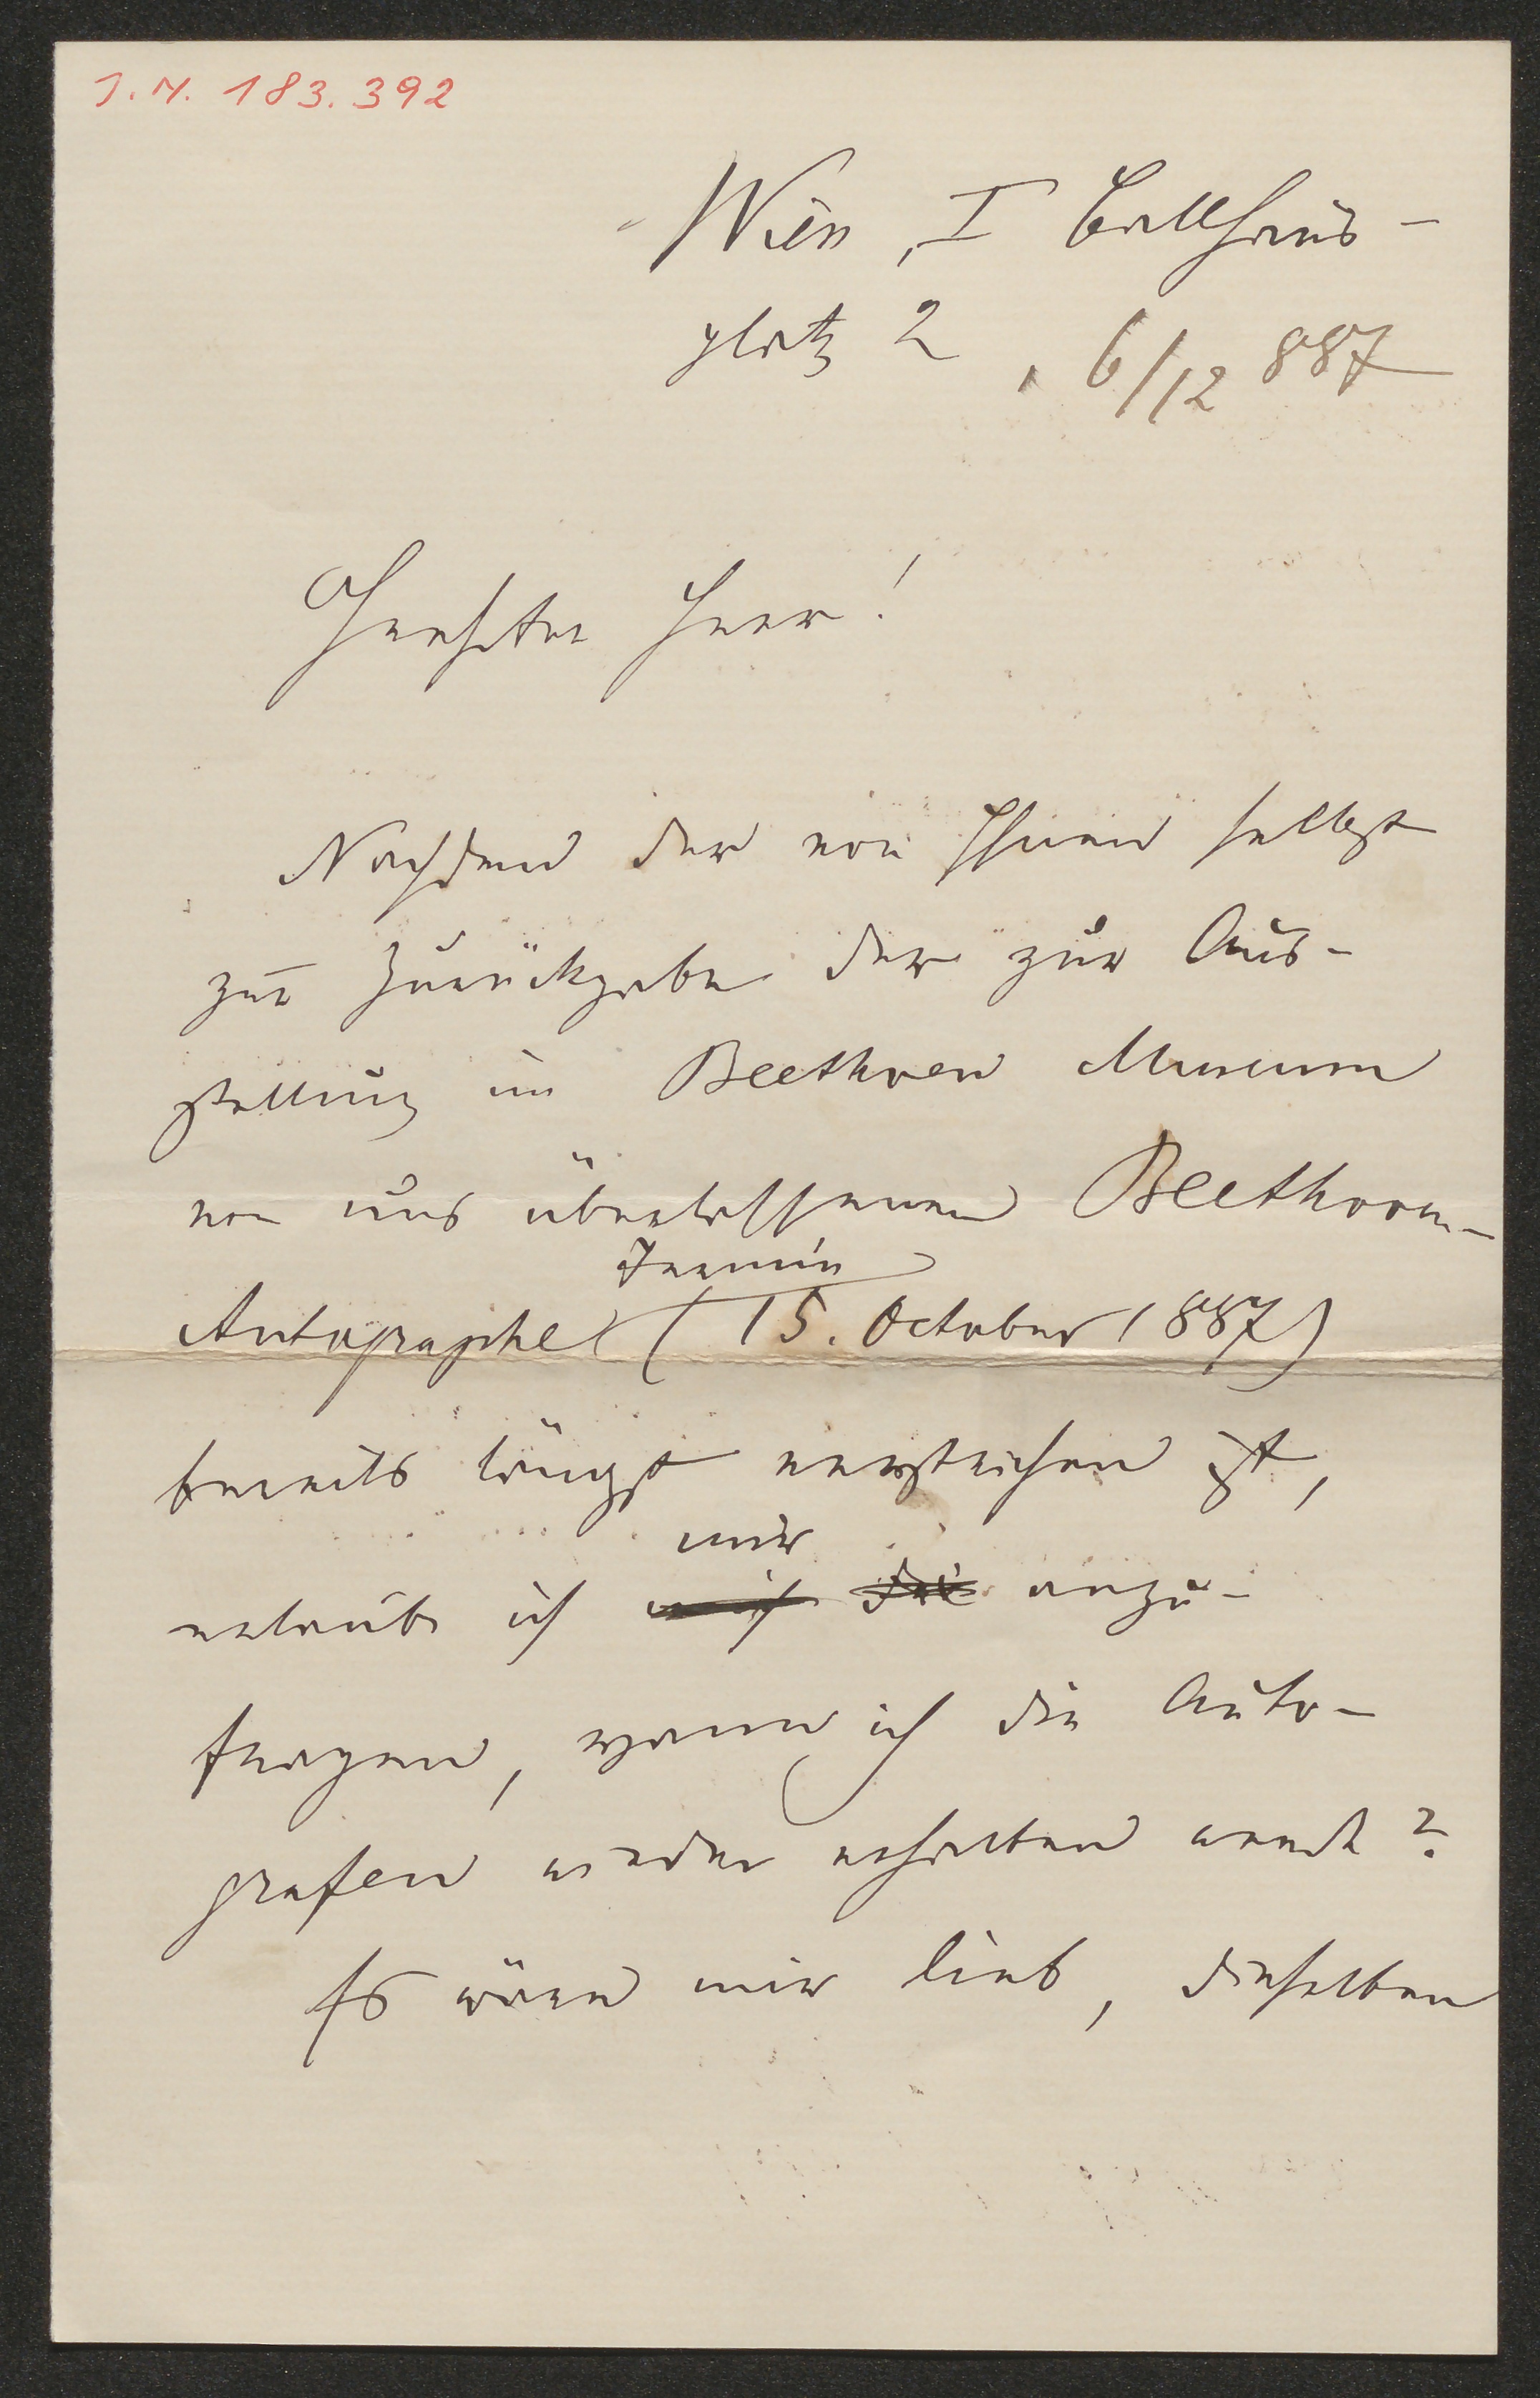 J. N. 183.392
Wien, I Ballhaus-
platz 2, 6/12 887
Geehrter Herr!
Nachdem der von Ihnen selbst
zur Zurückgabe der zur Aus-
stellung im Beethoven Museum
von uns überlassenen Beethoven-
Termin
Autographe (15. October 1887)
bereits längst verstrichen ist,
mir
erlaube ich mich die anzu-
fragen, wann ich die Auto-
grafen wieder erhalten werde?
Es wäre mir lieb, dieselben